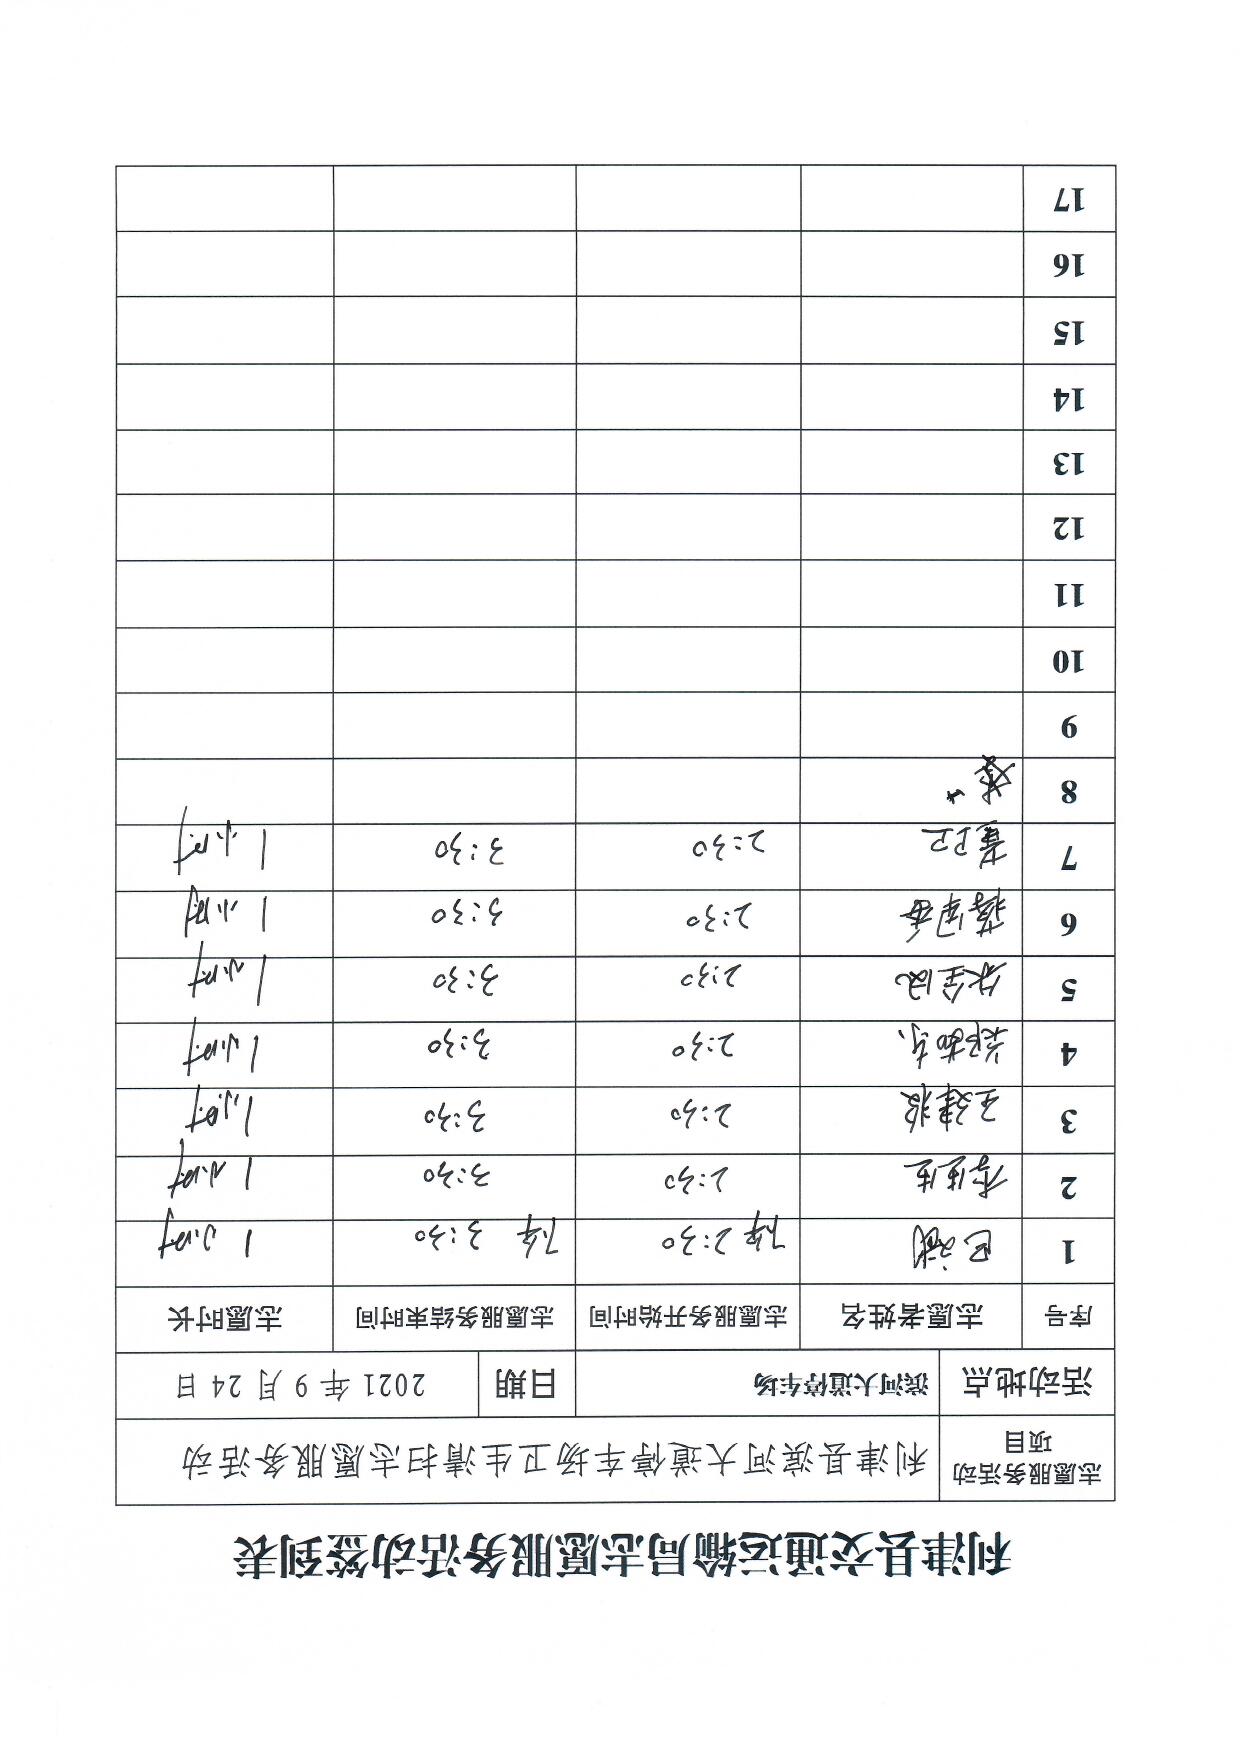 利津县交通运输局志愿服务活动签到表
志愿服务活动项目 利津县滨河大道停车场卫生清扫志愿服务活动
活动地点 滨河大道停车场 日期 2021 年 9 月 24 日
序号 志愿者姓名 志愿服务开始时间 志愿服务结束时间 志愿时长
1 下午2:30 下午 3:30 1小时
2 2:30 3:30 1小时
3 2:30 3:30 1小时
4 2:30 3:30 1小时
5 2:30 3:30 1小时
6 2:30 3:30 1小时
7 2:30 3:30 1小时
8
9
10
11
12
13
14
15
16
17